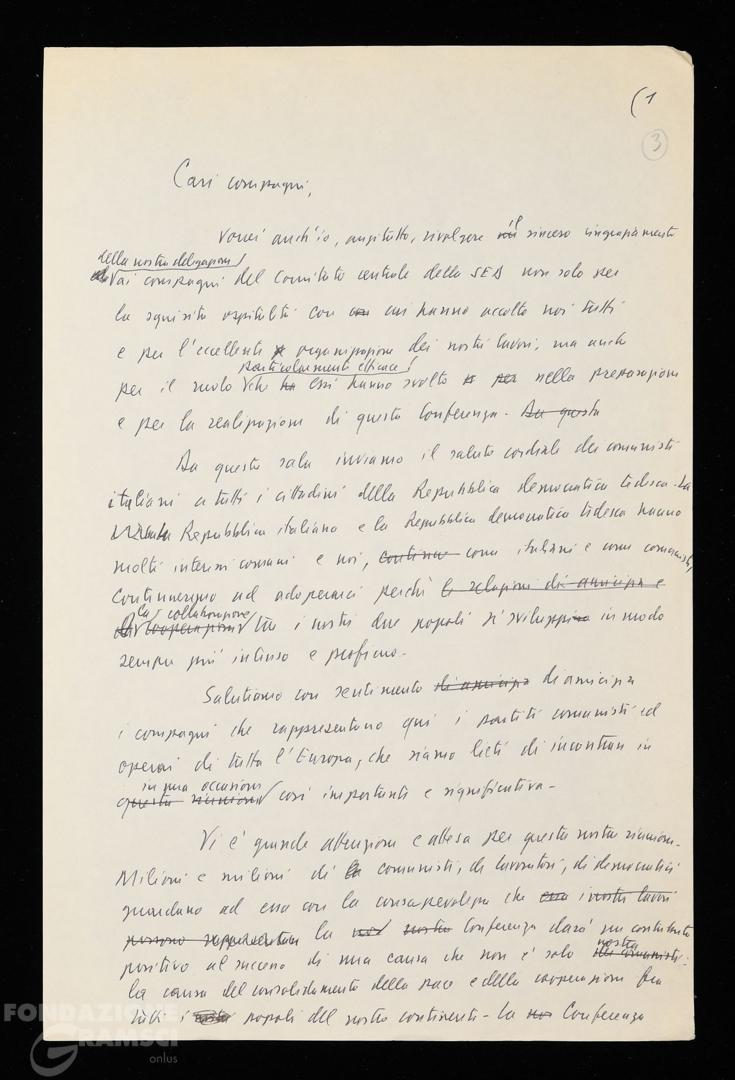 (1
3
Cari compagni,
Vorrei anch'io, anzitutto, rivolgere il sincero ringraziamento
della nostra delegazione
ai compagni del Comitato centrale della SED non solo per
la squisita ospitalità con cui hanno accolto noi tutti
e per l'eccellente organizzazione dei nostri lavori, ma anche
particolarmente efficace
per il ruolo che essi hanno svolto nella preparazione
e per la realizzazione di questa Conferenza. Da questa
Da questa sala inviamo il saluto cordiale dei comunisti
italiani a tutti i cittadini della Repubblica democratica tedesca. La
Repubblica italiana e la Repubblica democratica tedesca hanno
molti interessi comuni e noi, come italiani e come comunisti,
continueremo ad adoperarci perché le relazioni di amicizia e
la collaborazione
cooperazione tra i nostri due popoli si sviluppi in modo
sempre più intenso e proficuo.
Salutiamo con sentimento di amicizia di amicizia
i compagni che rappresentano qui i partiti comunisti ed
operai di tutta l'Europa, che siamo lieti di incontrare in
in una occasione
questa riunione così importante e significativa.
Vi è grande attenzione e attesa per questa nostra riunione.
Milioni e milioni di comunisti, di lavoratori, di democratici
guardano ad essa con la consapevolezza che essa i nostri lavori
possono rappresentare la nostra Conferenza darà un contributo
nostra
positivo al successo di una causa che non è solo dei comunisti:
la causa del consolidamento della pace e della cooperazione fra
tutti i popoli del nostro continente. La Conferenza
FONDAZIONE
GRAMSCI
onlus